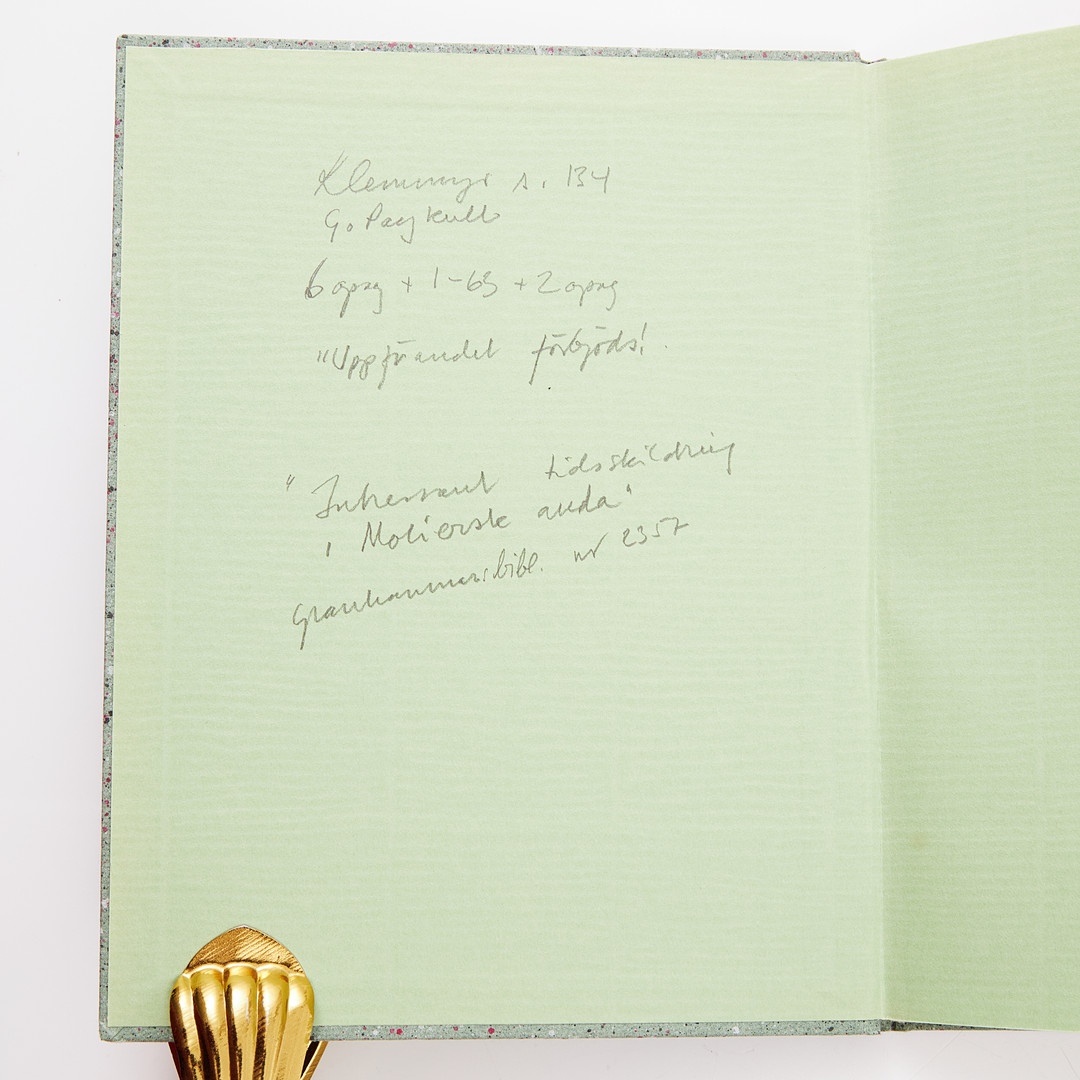 Klemmings s. 134
G. Paykull
6 opag + 1-63 + 2 opag
"Uppförandet förbjöds!
"Intressant tidsskildring
i Molierske anda"
bibl. nr 2357